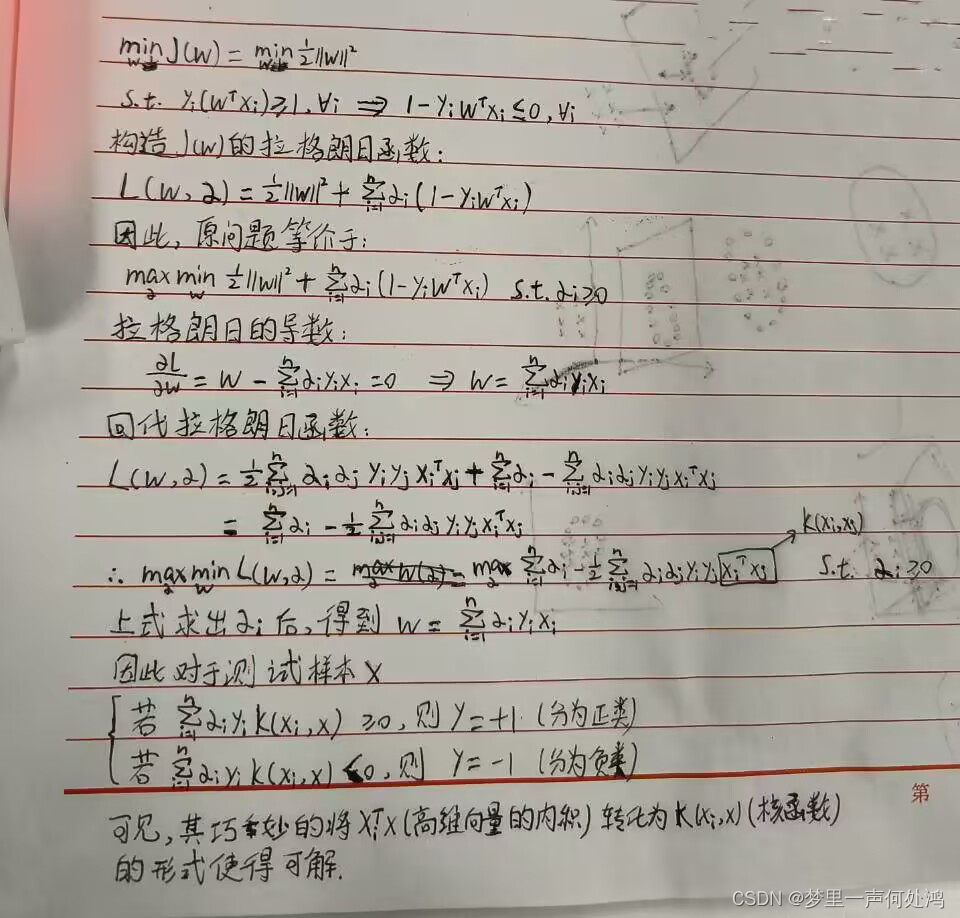 min_w J(w) = min_w ½||w||²
s.t. yᵢ(wᵀxᵢ)≥1, ∀i ⇒ 1-yᵢwᵀxᵢ≤0, ∀i
构造J(w)的拉格朗日函数:
L(w,α) = ½||w||² + Σⁿᵢ₌₁ αᵢ(1-yᵢwᵀxᵢ)
因此, 原问题等价于:
max_α min_w ½||w||² + Σⁿᵢ₌₁ αᵢ(1-yᵢwᵀxᵢ) s.t. αᵢ≥0
拉格朗日的导数:
∂L/∂w = w - Σⁿᵢ₌₁ αᵢyᵢxᵢ = 0 ⇒ w = Σⁿᵢ₌₁ αᵢyᵢxᵢ
回代拉格朗日函数:
L(w,α) = ½Σⁿᵢ,ⱼ₌₁ αᵢαⱼyᵢyⱼxᵢᵀxⱼ + Σⁿᵢ₌₁ αᵢ - Σⁿᵢ,ⱼ₌₁ αᵢαⱼyᵢyⱼxᵢᵀxⱼ
= Σⁿᵢ₌₁ αᵢ - ½Σⁿᵢ,ⱼ₌₁ αᵢαⱼyᵢyⱼxᵢᵀxⱼ
k(xᵢ,xⱼ)
∴ max_α min_w L(w,α) = max_α Σⁿᵢ₌₁ αᵢ - ½Σⁿᵢ,ⱼ₌₁ αᵢαⱼyᵢyⱼxᵢᵀxⱼ s.t. αᵢ≥0
上式求出αᵢ后, 得到 w = Σⁿᵢ₌₁ αᵢyᵢxᵢ
因此对于测试样本x
若 Σⁿᵢ₌₁ αᵢyᵢk(xᵢ,x) ≥0, 则 y=+1 (分为正类)
若 Σⁿᵢ₌₁ αᵢyᵢk(xᵢ,x) <0, 则 y=-1 (分为负类)
第
可见, 其巧妙的将xᵢᵀx(高维向量的内积)转化为k(xᵢ,x)(核函数)
的形式使得可解.
CSDN @梦里一声何处鸿